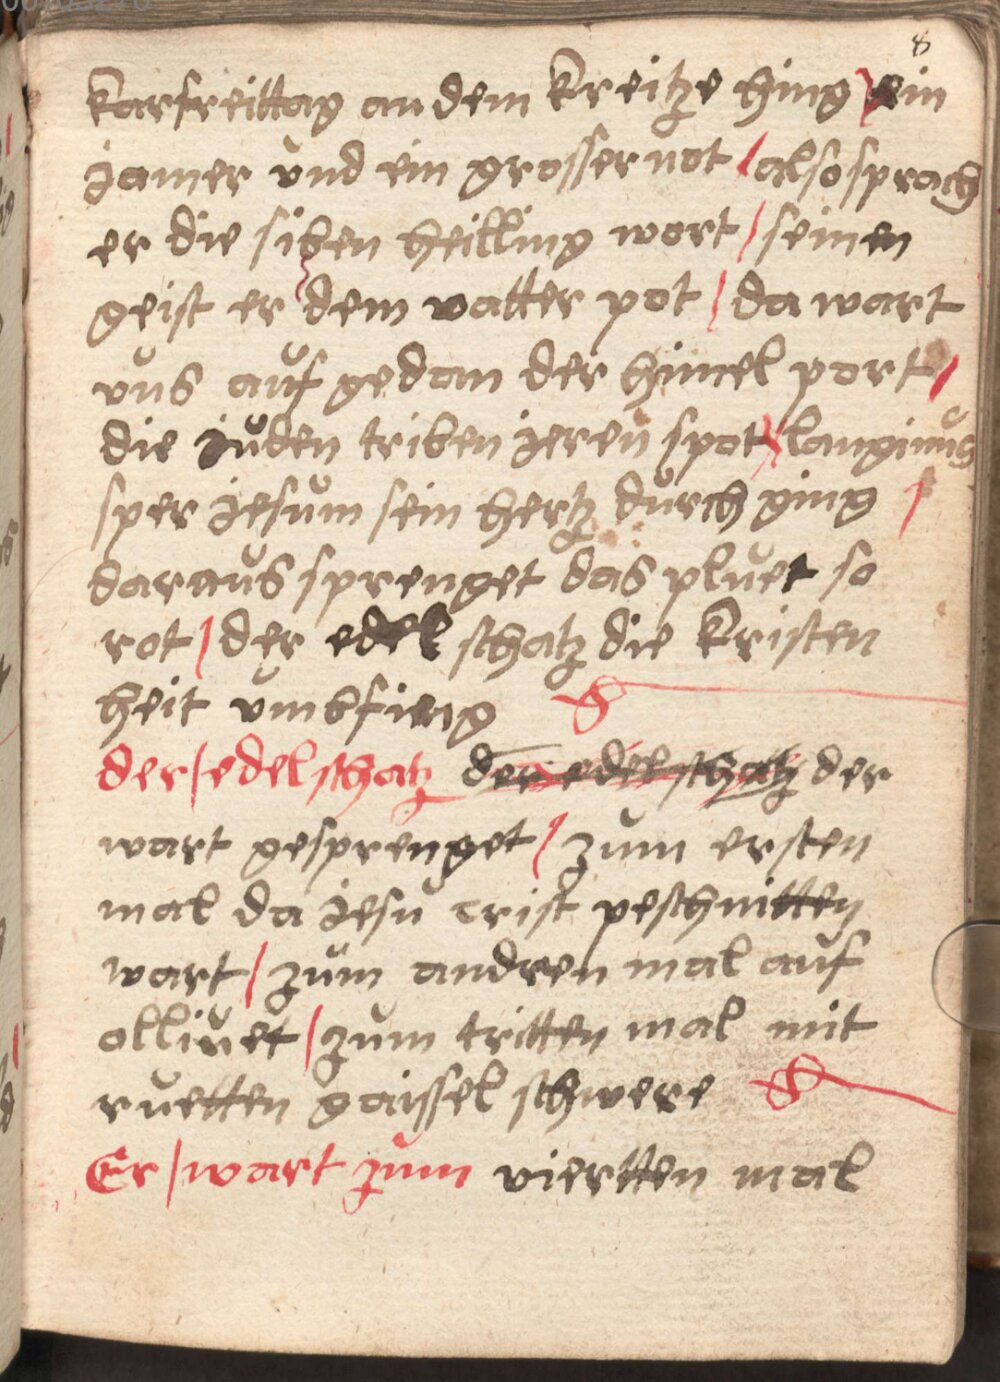 8
karfreittag an dem kreitze hing / ein
jamer vnd ein grosser not / also sprach
er die siben heilling wort / seinen
geist er dem vatter pot / da wart
vns auf gedan der himel port /
die juden triben jeren spot / langinus
sper jesum sein hertz durch ging /
daraus sprenget das pluet so
rot / der edel schatz die kristen
heit vmbfieng
der / edel schatz der edel schatz der
wart gesprenget / zum ersten
mal da jesu crist peschnitten
wart / zum andren mal auf
olliuet / zum tritten mal mit
ruetten gaissel schwere
Er / wart zum viertten mal